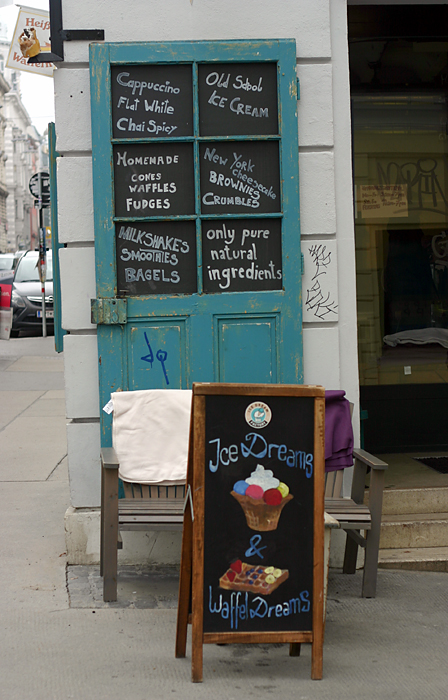 Heiß
Cappuccino
Flat White
Chai Spicy
Old School
ICE CREAM
HOMEMADE
CONES
WAFFLES
FUDGES
New York
cheesecake
BROWNIES
CRUMBLES
MILKSHAKES
SMOOTHIES
BAGELS
only pure
natural
ingredients
Ice Dreams
&
Waffel Dreams